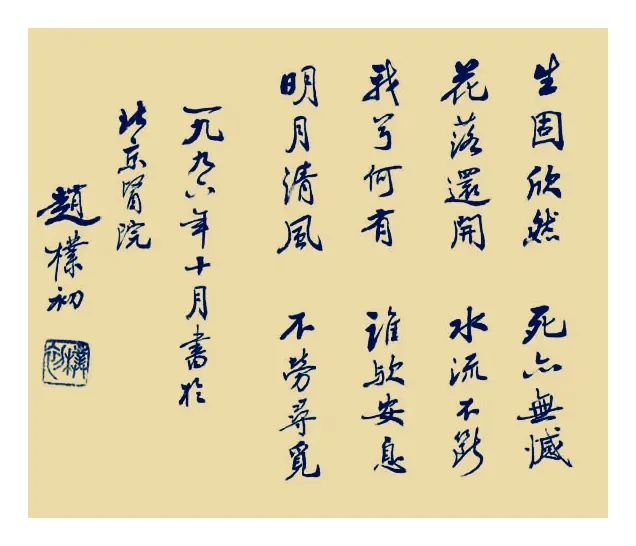 生固欣然 死亦無憾
花落還開 水流不斷
我兮何有 誰歟安息
明月清風 不勞尋覓
一九九六年十月書於
北京醫院
趙樸初
樸初